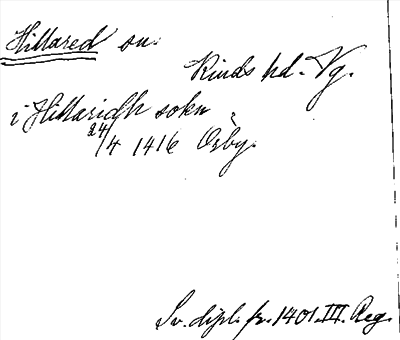 Hillared sn.
Kinds hd. Vg.
i Hillaridh sokn
24/4 1416 Örby.
Sv. dipl. fr. 1401. III. Reg.